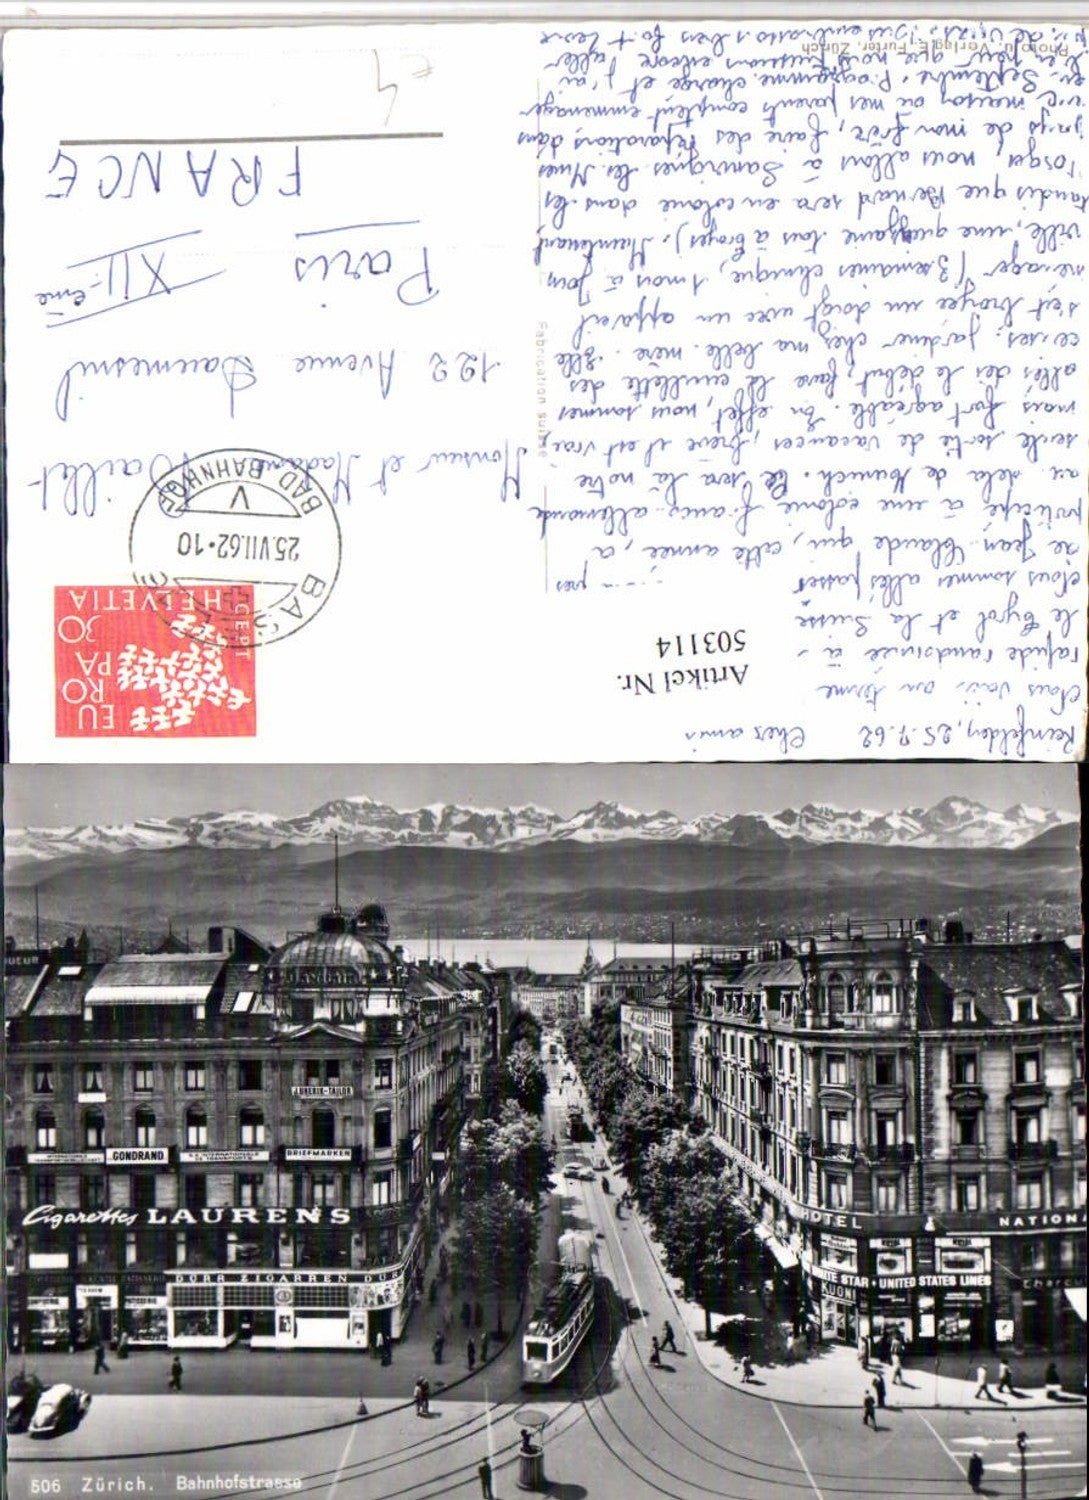 Reinfelden, 25.7.62 Chers amis
Nous voici au terme
rapide randonnée à
le Tyrol et la Suisse
Nous sommes allés passer
de Jean-Claude qui, cette année, a
participé à une colonie franco-allemande
au delà de Munich. Ce sera là notre
seule sortie de vacances, brève il est vrai
mais fort agréable. En effet, nous sommes
allés dès le début, faire la cueillette des
cerises; jardiner chez ma belle-mère. Elle
s'est broyée un doigt avec un appareil
ménager (3 semaines clinique, 1 mois à
ville, une quinzaine tous à Troyes). Maintenant
tandis que Bernard sera en colonie dans les
Vosges, nous allons à Sanvignes-les-Mines
pays de mon frère, faire des réparations dans
maison où mes parents comptent emménager
en Septembre. Programme chargé et j'ai
bien peur que nous puissions encore aller
de vous embrassons bien fort
Artikel Nr.
503114
Photo u. Verlag E. Furter, Zürich
Fabrication suisse
EUROPA
30
CEPT
HELVETIA
BASEL
25.VII.62·10
V
BAD. BAHNHOF
Monsieur et Madame Baillet
122 Avenue Daumesnil
Paris
XII-ème
FRANCE
€4
J. OBERIK-TAILOR
GONDRAND
S.A. INTERNATIONALE
DE TRANSPORTS
BRIEFMARKEN
Cigarettes LAURENS
DÜRR ZIGARREN DÜR
HOTEL
NATION
TE STAR • UNITED STATES LINES
KUONI
506 Zürich. Bahnhofstrasse